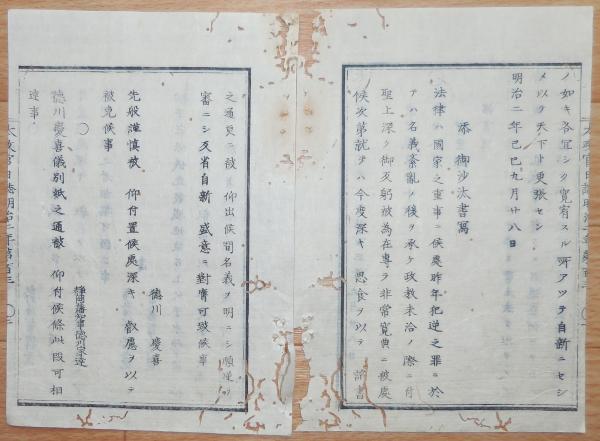 ノ如キ各宜シク寛宥スル所アツテ自新ニセシ
メ以テ天下ト更張セン
明治二年己巳九月廿八日
添 御沙汰書寫
法律ハ國家之重事ニ候處昨年犯逆之罪ニ於
テハ名義紊乱ノ後ヲ承ケ政教未洽ノ際ニ付
聖上深ク御反躬被為在專ラ非常寛典ニ被處
候次第就テハ今度深キ 思食ヲ以テ 詔書
之通更ニ被 仰出候間名義ヲ明ニシ順逆ヲ
審ニシ反省自新 盛意ニ對膺可致候事
徳川 慶喜
先般謹慎被 仰付置候處深キ 叡慮ヲ以テ
被免候事
○
静岡藩知事徳川家達
徳川慶喜儀別紙之通被 仰付候條此段可相
達事
太政官日誌明治二年第百三